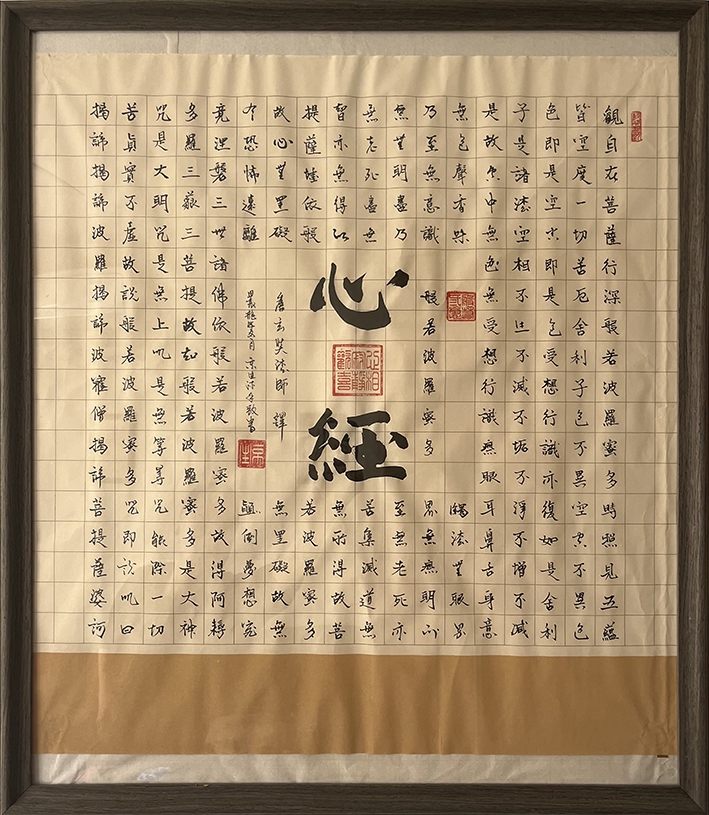 觀自在菩薩行深般若波羅蜜多時照見五蘊
皆空度一切苦厄舍利子色不異空空不異色
色即是空空即是色受想行識亦復如是舍利
子是諸法空相不生不滅不垢不淨不增不減
是故空中無色無受想行識無眼耳鼻舌身意
無色聲香味觸法無眼界
乃至無意識界無無明亦
無無明盡乃至無老死亦
無老死盡無苦集滅道無
智亦無得以無所得故菩
提薩埵依般若波羅蜜多
故心無罣礙無罣礙故無
有恐怖遠離顛倒夢想究
竟涅槃三世諸佛依般若波羅蜜多故得阿耨
多羅三藐三菩提故知般若波羅蜜多是大神
咒是大明咒是無上咒是無等等咒能除一切
苦真實不虛故說般若波羅蜜多咒即說咒曰
揭諦揭諦波羅揭諦波羅僧揭諦菩提薩婆訶
般若波羅蜜多
心經
唐玄奘法師 譯